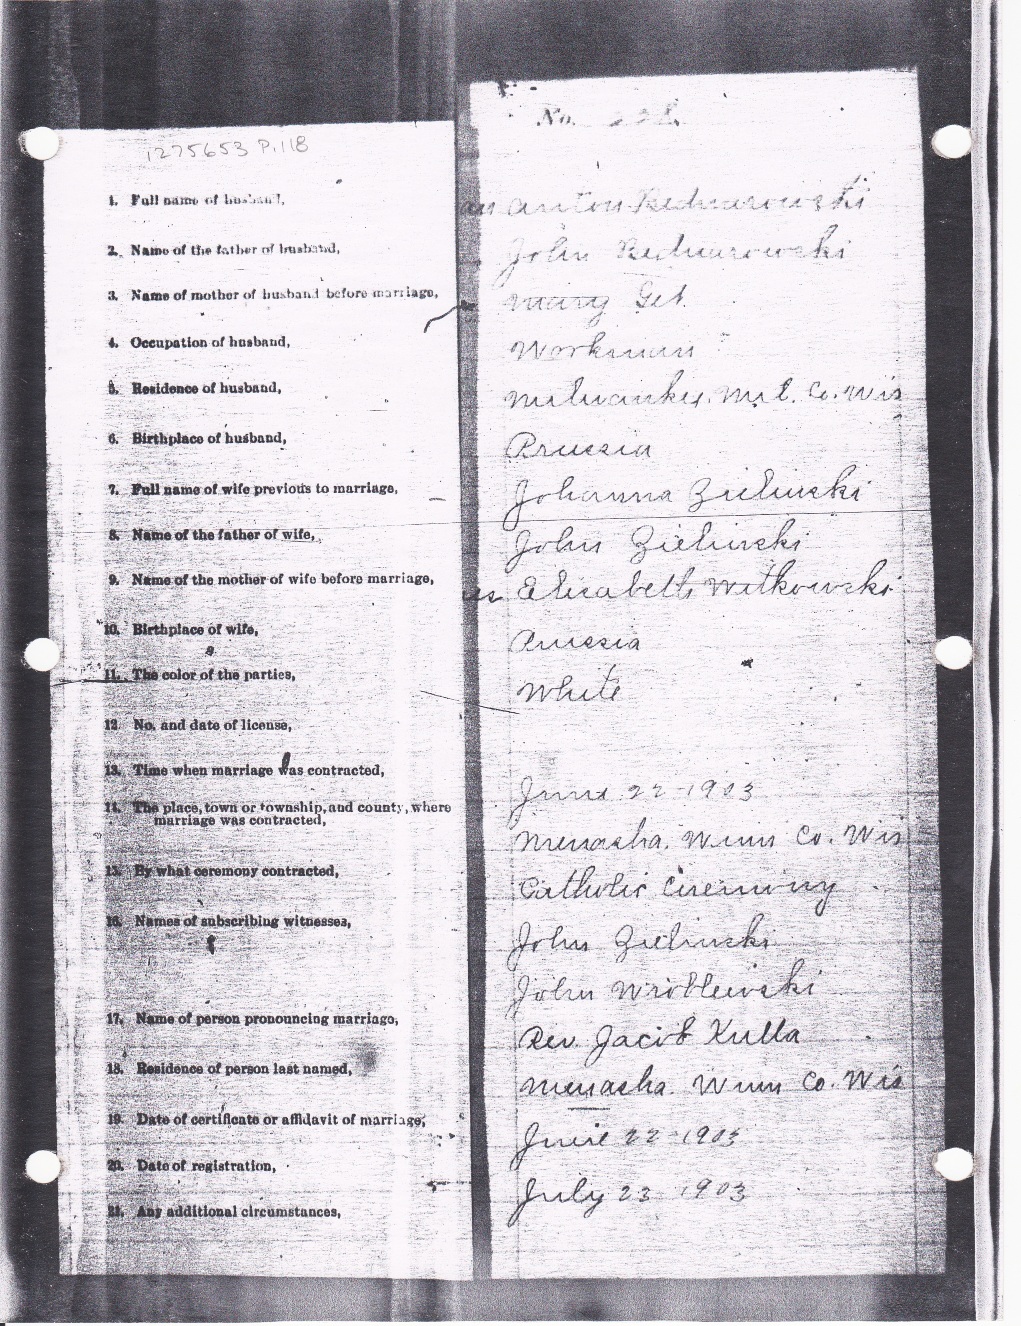 1275653 P.118
No.
1. Full name of husband, Anton Bednarowski
2. Name of the father of husband, John Bednarowski
3. Name of mother of husband before marriage, Mary
4. Occupation of husband, Workman
5. Residence of husband, Milwaukey, Mil. Co. Wis
6. Birthplace of husband, Prussia
7. Full name of wife previous to marriage, Johanna Zielinski
8. Name of the father of wife, John Zielinski
9. Name of the mother of wife before marriage, Elisabeth Witkowski
10. Birthplace of wife, Prussia
11. The color of the parties, White
12. No. and date of license,
13. Time when marriage was contracted, June 22 - 1903
14. The place, town or township, and county, where
marriage was contracted, Menasha, Winn Co. Wis
15. By what ceremony contracted, Catholic Ceremony
16. Names of subscribing witnesses, John Zielinski
John Wroblewski
17. Name of person pronouncing marriage, Rev. Jacob Kulla
18. Residence of person last named, Menasha. Winn Co. Wis
19. Date of certificate or affidavit of marriage, June 22 - 1903
20. Date of registration, July 23 - 1903
21. Any additional circumstances,